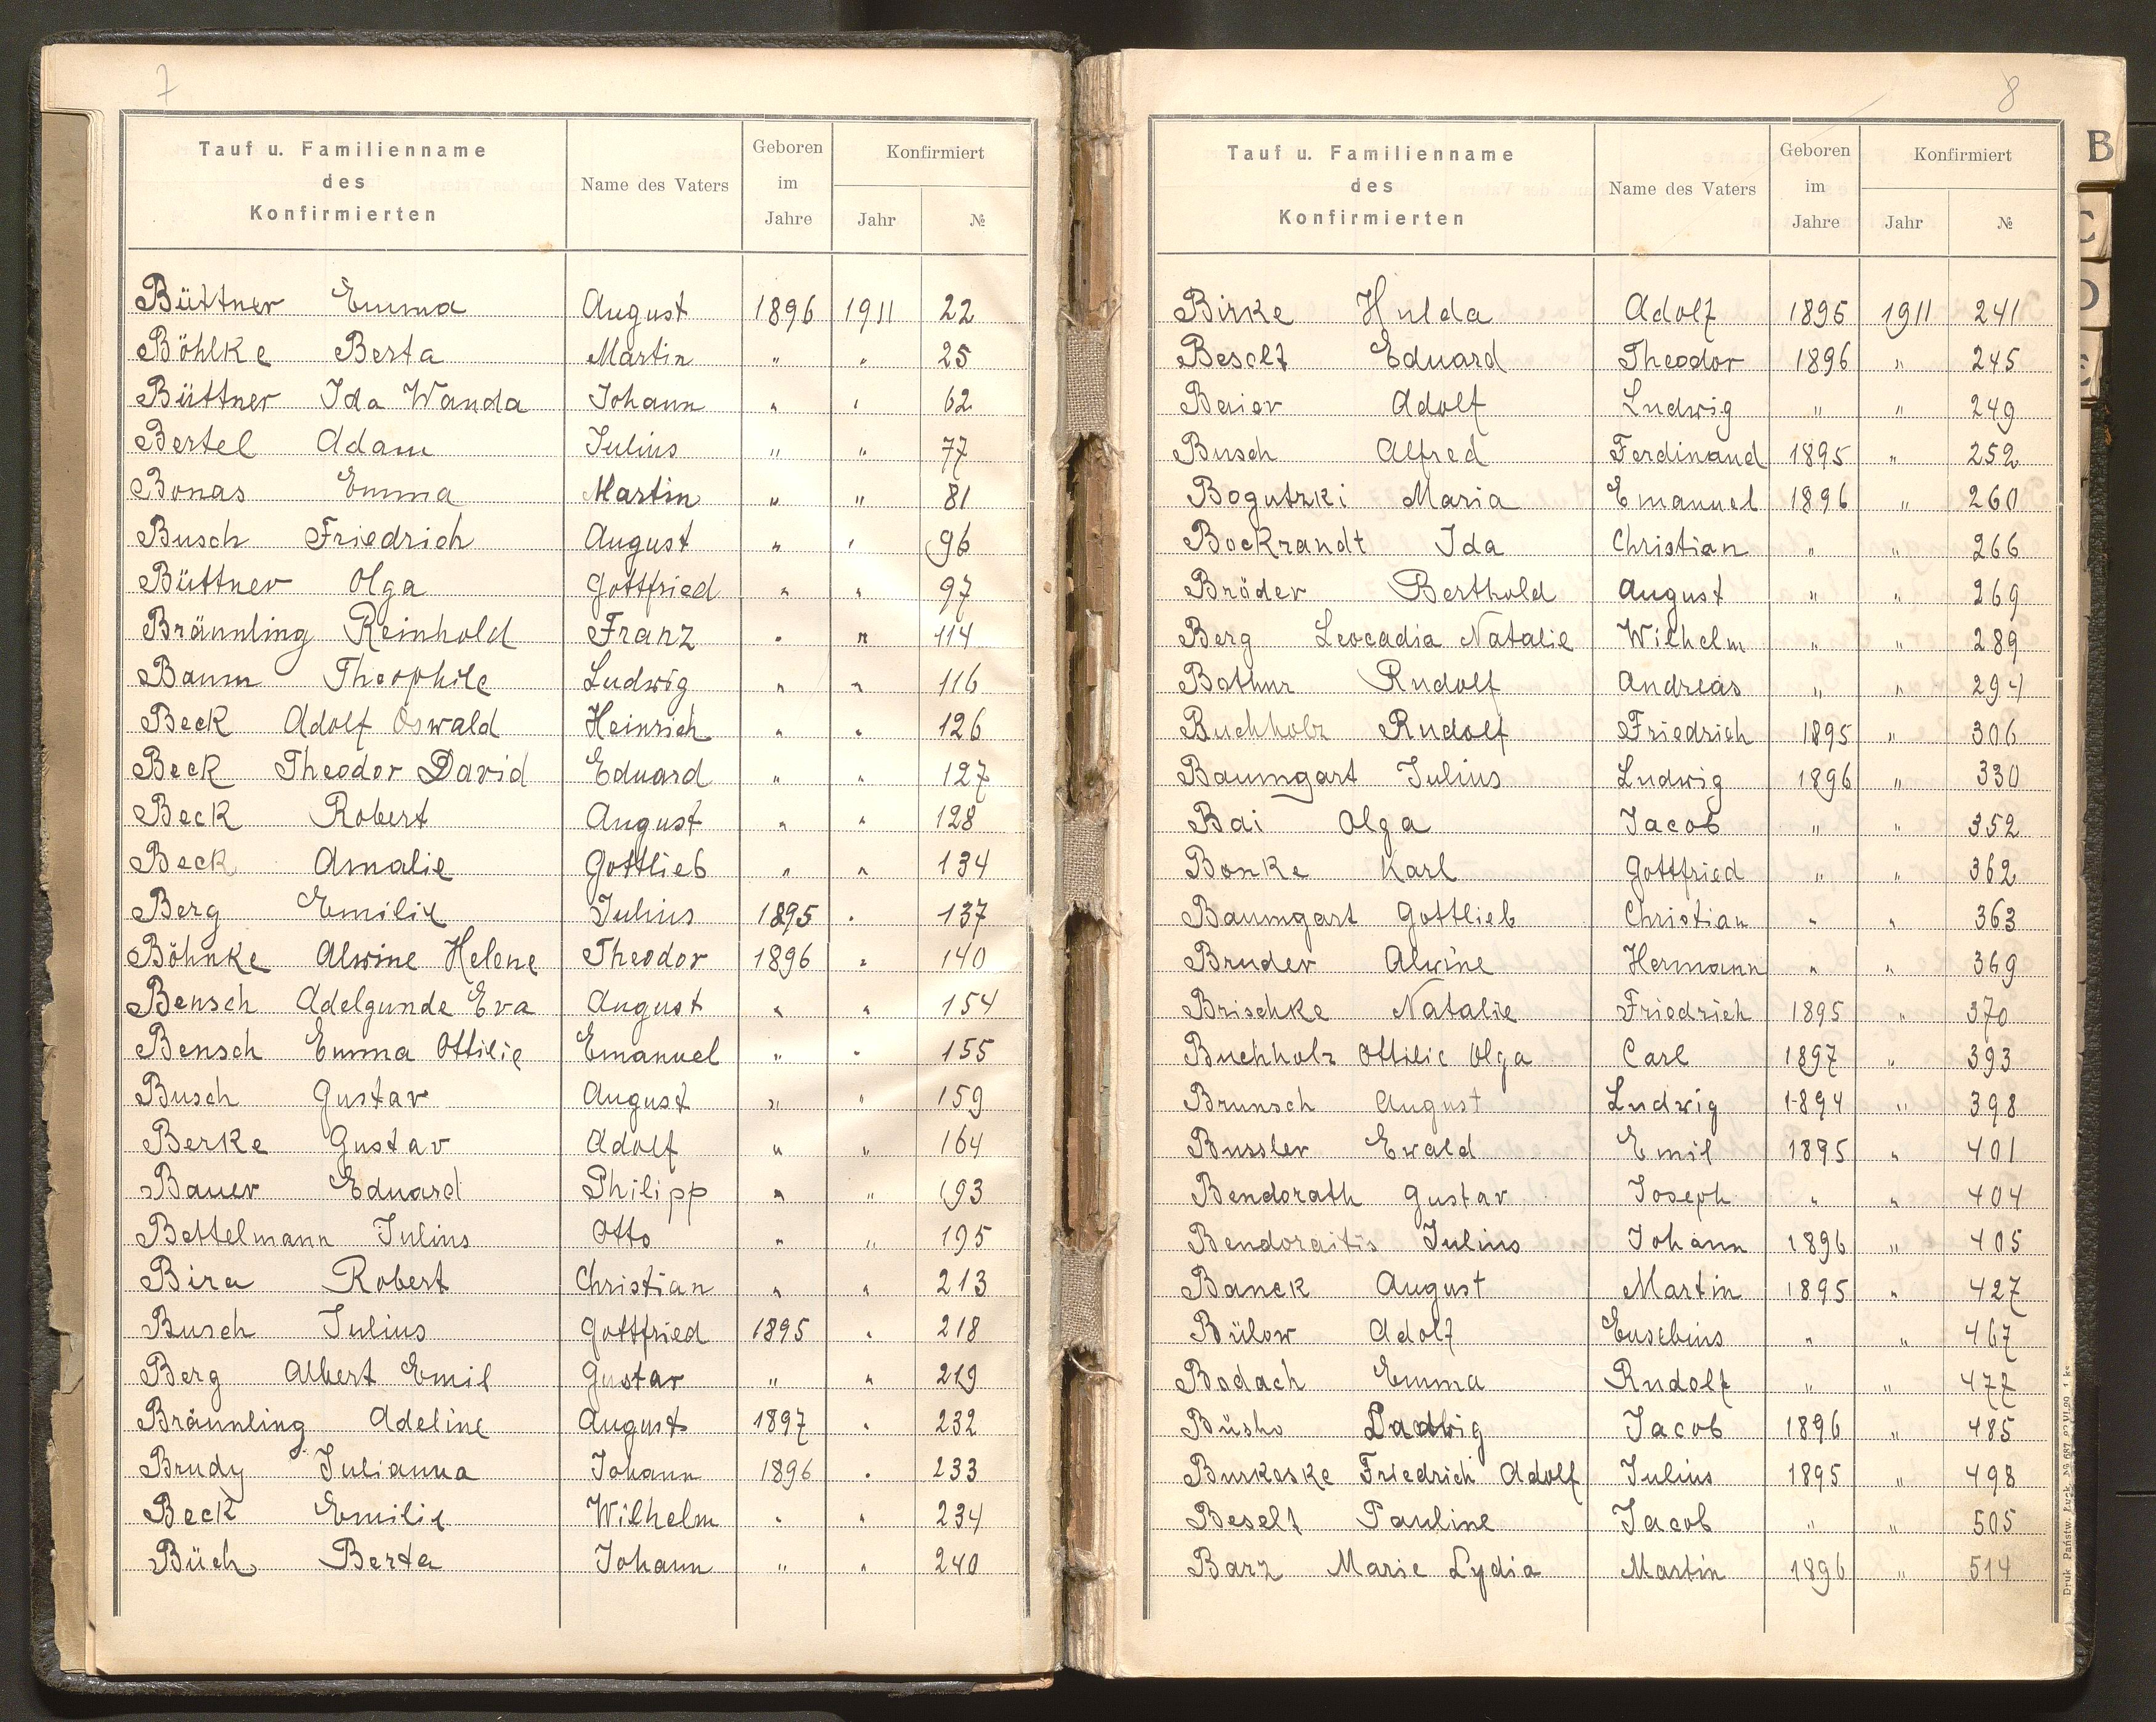 7
Tauf u. Familienname des Konfirmierten Name des Vaters Geboren im Jahre Konfirmiert Jahr №
Büttner Emma August 1896 1911 22
Böhlke Berta Martin " " 25
Büttner Ida Wanda Johann " " 62
Bertel Adam Julius " " 77
Bonas Emma Martin " " 81
Busch Friedrich August " " 96
Büttner Olga Gottfried " " 97
Bräunling Reinhold Franz " " 114
Baum Theophile Ludwig " " 116
Beck Adolf Oswald Heinrich " " 126
Beck Theodor David Eduard " " 127
Beck Robert August " " 128
Beck Amalie Gottlieb " " 134
Berg Emilie Julius 1895 " 137
Böhnke Alwine Helene Theodor 1896 " 140
Bensch Adelgunde Eva August " " 154
Bensch Emma Ottilie Emanuel " " 155
Busch Gustav August " " 159
Berke Gustav Adolf " " 164
Bauer Eduard Philipp " " 193
Bettelmann Julius Otto " " 195
Bira Robert Christian " " 213
Busch Julius Gottfried 1895 " 218
Berg Albert Emil Gustav " " 219
Bräunling Adeline August 1897 " 232
Brudy Julianna Johann 1896 " 233
Beck Emilie Wilhelm " " 234
Büch Berta Johann " " 240
8
Tauf u. Familienname des Konfirmierten Name des Vaters Geboren im Jahre Konfirmiert Jahr №
Birke Hulda Adolf 1895 1911 241
Beselt Eduard Theodor 1896 " 245
Beier Adolf Ludwig " " 249
Busch Alfred Ferdinand 1895 " 252
Bogutzki Maria Emanuel 1896 " 260
Bockrandt Ida Christian " " 266
Bräder Berthold August " " 269
Berg Leocadia Natalie Wilhelm " " 289
Bathur Rudolf Andreas " " 294
Buchholz Rudolf Friedrich 1895 " 306
Baumgart Julius Ludwig 1896 " 330
Bai Olga Jacob " " 352
Bonke Karl Gottfried " " 362
Baumgart Gottlieb Christian " " 363
Bruder Alwine Hermann " " 369
Brischke Natalie Friedrich 1895 " 370
Buchholz Ottilie Olga Carl 1897 " 393
Brunsch August Ludwig 1894 " 398
Bussler Ewald Emil 1895 " 401
Bendorath Gustav Joseph " " 404
Bendoraitis Julius Johann 1896 " 405
Banek August Martin 1895 " 427
Bülow Adolf Eusebius " " 467
Bodach Emma Rudolf " " 477
Büsho Ludwig Jacob 1896 " 485
Burkeske Friedrich Adolf Julius 1895 " 498
Beselt Pauline Jacob " " 505
Barz Marie Lydia Martin 1896 " 514
B
C
D
E
Druk Państw. Łuck